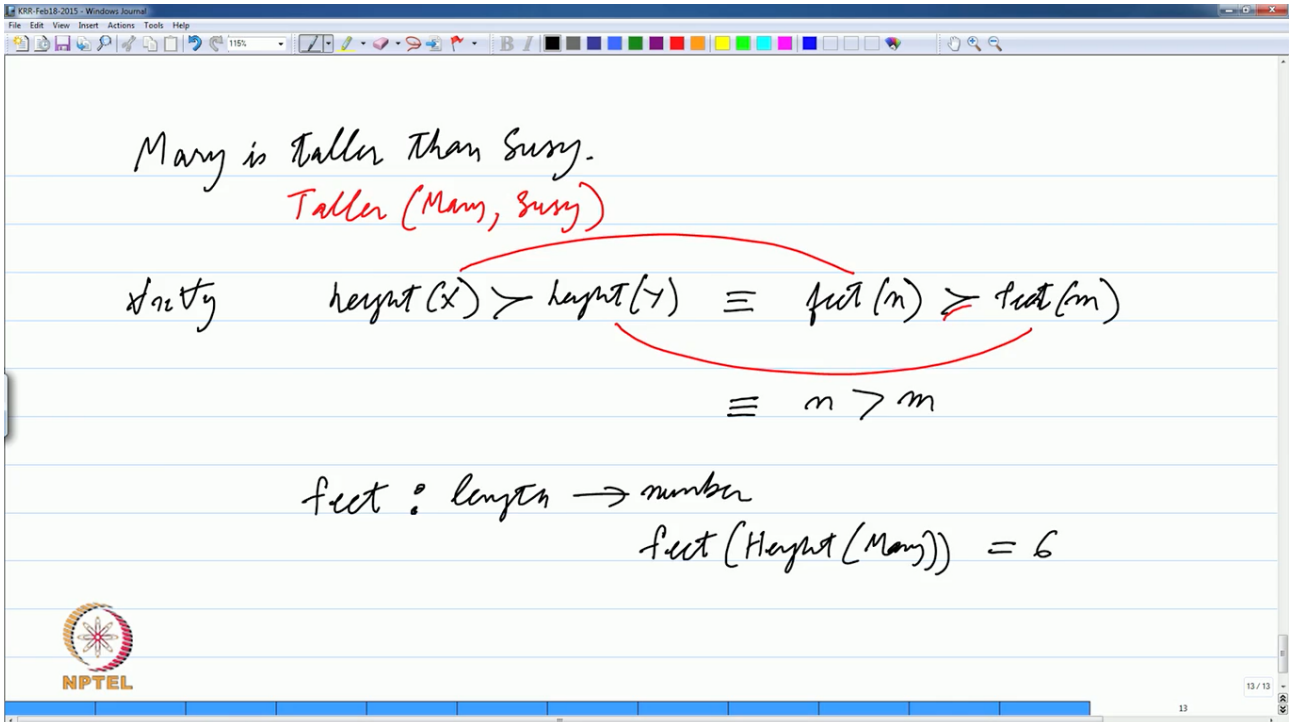 KRR-Feb18-2015 - Windows Journal
File Edit View Insert Actions Tools Help
115%
B I
Mary is taller than Susy.
Taller (Mary, Susy)
∀x∀y height(X) > height(Y) ≡ feet(n) > feet(m)
≡ n > m
feet : length → number
feet (Height (Mary)) = 6
NPTEL
13 / 13
13